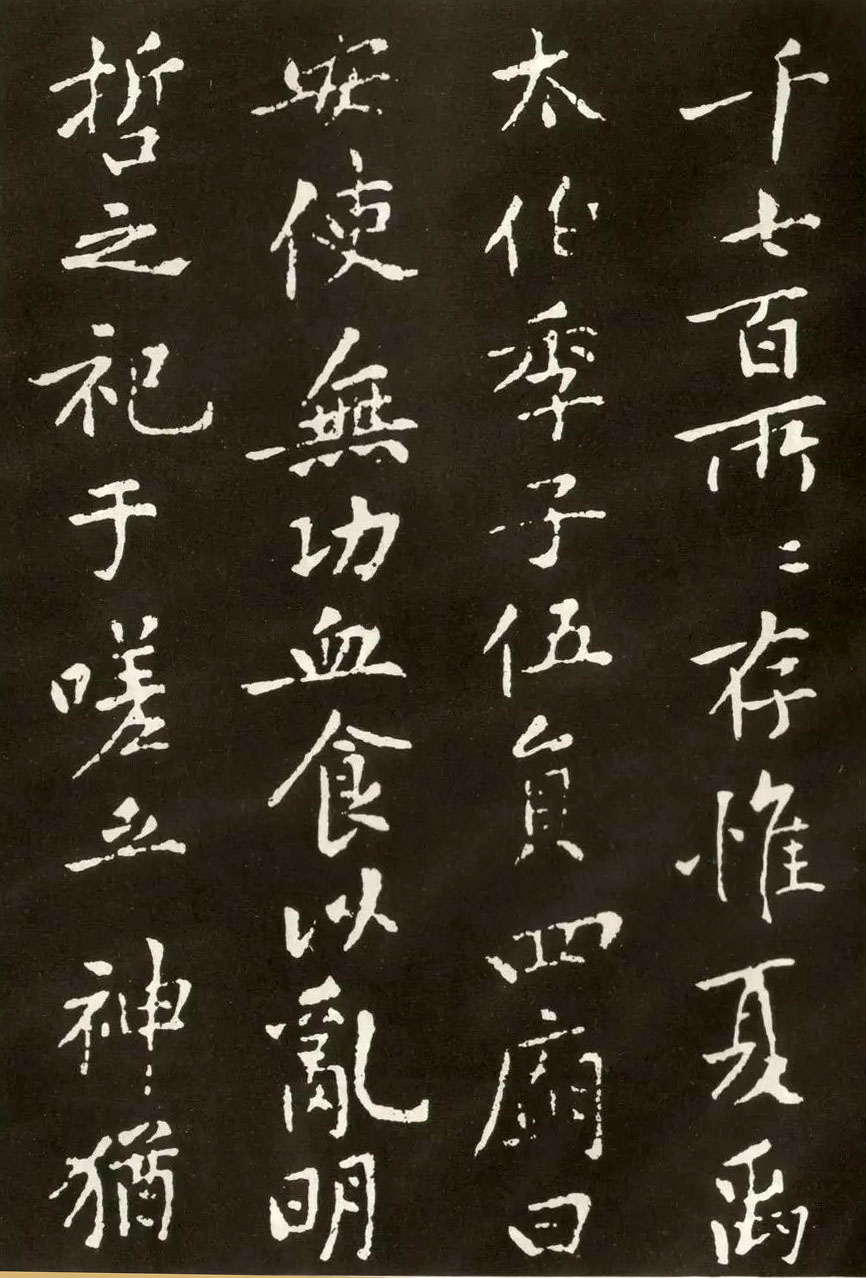 千七百所所存惟夏禹
太伯季子伍員四廟曰
安使無功血食以亂明
哲之祀于嗟立神猶